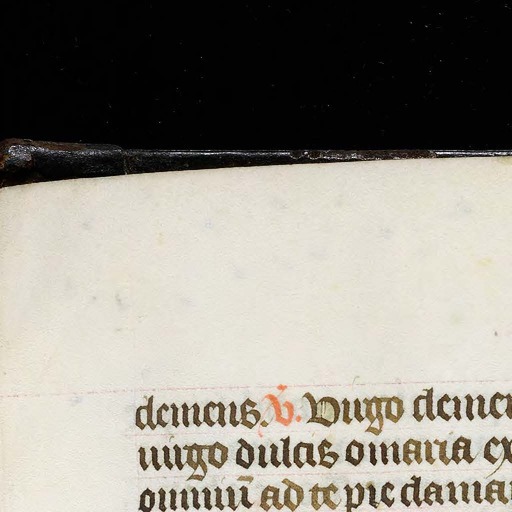 clemens. v̄. Virgo clemen
uirgo dulcis o maria ex
omniū ad te pie claman